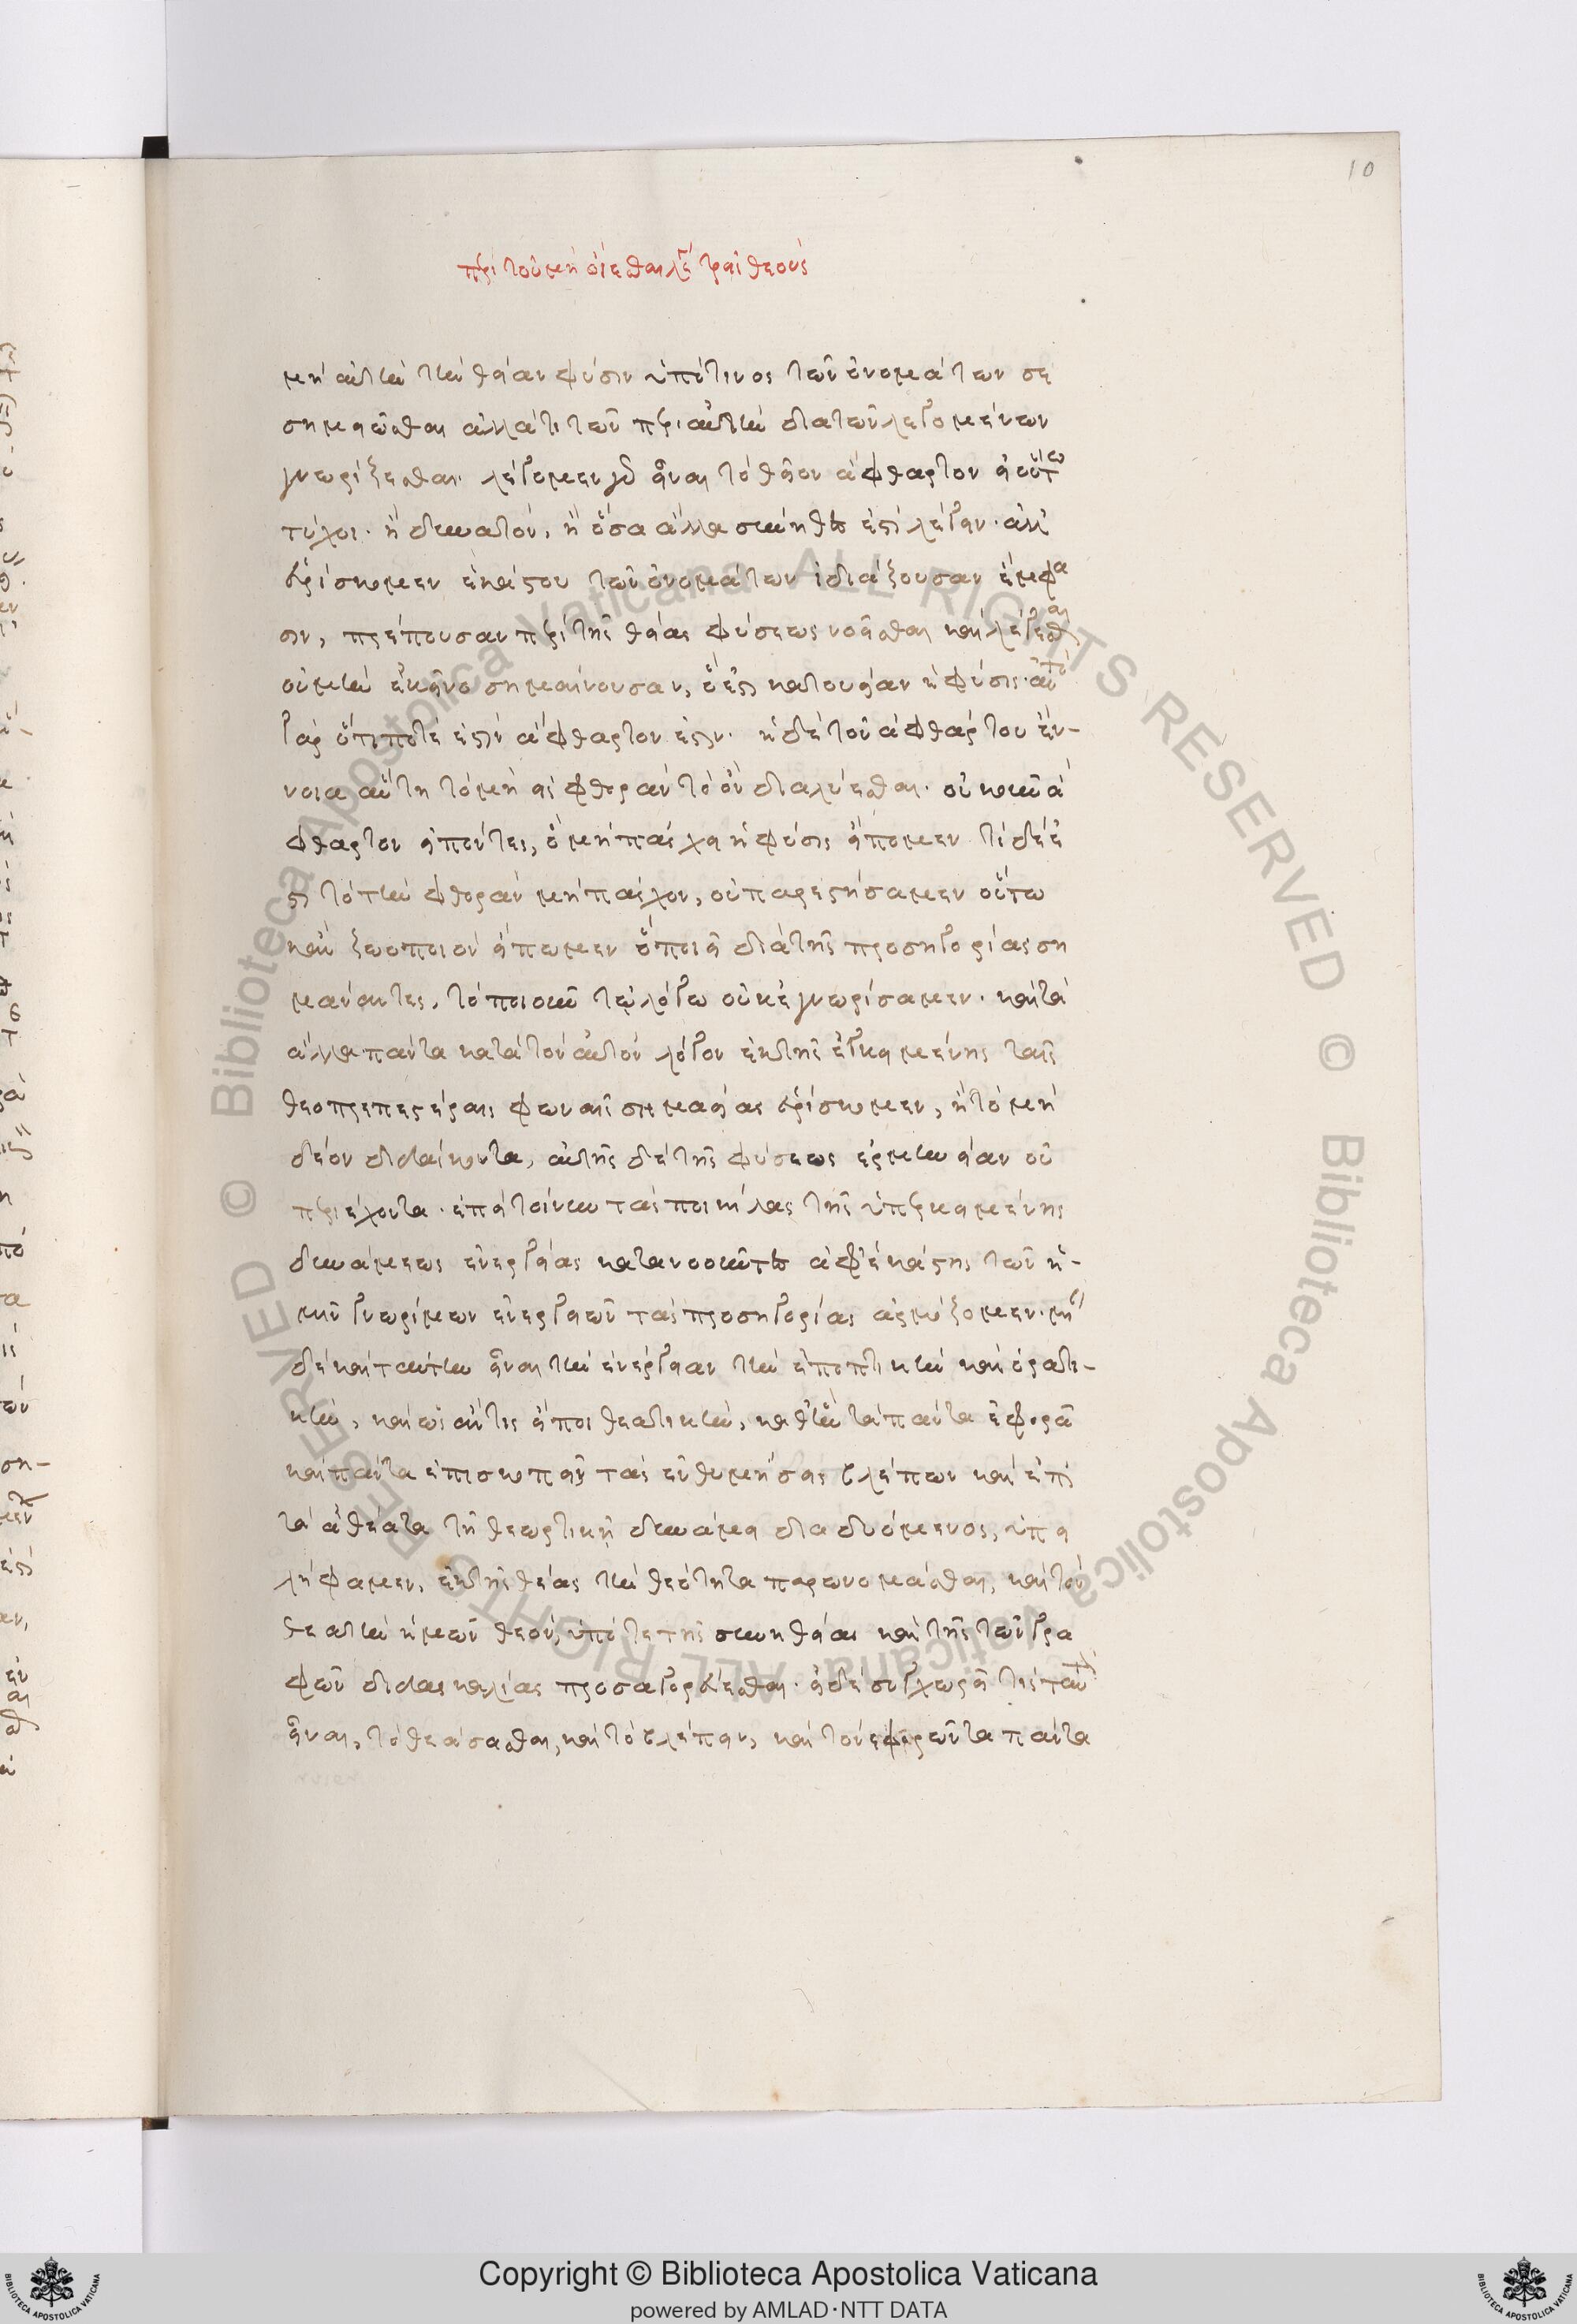 10
περὶ τοῦ μὴ οἴεσθαι λέγειν τρεῖς θεούς
μὴ αὐτὴν τὴν θείαν φύσιν ὑπό τινος τῶν ὀνομάτων σε
σημειῶσθαι ἀλλά τι τῶν περὶ αὐτὴν διὰ τῶν λεγομένων
γνωρίζεσθαι. λέγομεν γὰρ εἶναι τὸ θεῖον ἄφθαρτον εἰ οὕτω
τύχοι. ἢ δυνατόν, ἢ ὅσα ἄλλα σύνηθες ἐστὶ λέγειν. ἀλλ'
εὑρίσκομεν ἑκάστου τῶν ὀνομάτων ἰδιάζουσαν ἔμφα
σιν, πρέπουσαν περὶ τῆς θείας φύσεως νοεῖσθαι καὶ λέγεσθαι
οὐ μὴν ἐκεῖνο σημαίνουσαν, ὅ ἐστι κατ' οὐσίαν ἡ φύσις. αὐτὸ
γὰρ ὅτι ποτέ ἐστιν ἄφθαρτον ἐστιν. ἡ δὲ τοῦ ἀφθάρτου ἔν-
νοια αὕτη τὸ μὴ εἰς φθορὰν τὸ ὂν διαλύεσθαι. οὐκοῦν ἄ
φθαρτον εἰπόντες, ὃ μὴ πάσχει ἡ φύσις εἴπομεν τί δέ ἐ
στι τὸ τὴν φθορὰν μὴ πάσχον, οὐ παρεστήσαμεν οὕτω
κἂν ζωοποιὸν εἴπωμεν ὃ ποιεῖ διὰ τῆς προσηγορίας ση
μάναντες, τὸ ποιοῦν τῷ λόγῳ οὐκ ἐγνωρίσαμεν. καὶ τὰ
ἄλλα πάντα κατὰ τὸν αὐτὸν λόγον ἐκ τῆς ἐγκειμένης ταῖς
θεοπρεπεστέραις φωναῖς σημασίας εὑρίσκομεν, ἢ τὸ μὴ
δέον διδάσκοντα, αὐτῆς δὲ τῆς φύσεως ἑρμηνείαν οὐ
περιέχοντα. ἐπεὶ τοίνυν τὰς ποικίλας τῆς ὑπερκειμένης
δυνάμεως ἐνεργείας κατανοοῦντες ἀφ' ἑκάστης τῶν ἡ-
μῖν γνωρίμων ἐνεργειῶν τὰς προσηγορίας ἁρμόζομεν. μίαν
δὲ καὶ ταύτην εἶναι τὴν ἐνέργειαν τὴν ἐποπτικὴν καὶ ὁρατι-
κήν, καὶ ὡς ἄν τις εἴποι θεατικήν, καθ' ἣν τὰ πάντα ἐφορᾷ
καὶ πάντα ἐπισκοπεῖ, τὰς ἐνθυμήσεις βλέπων καὶ ἐπὶ
τὰ ἀθέατα τῇ θεωρητικῇ δυνάμει διαδυόμενος, ὑπει
λήφαμεν, ἐκ τῆς θέας τὴν θεότητα παρωνομάσθαι, καὶ τὸν
θεατὴν ἡμῶν θεόν, ὑπό τε τῆς συνηθείας καὶ τῆς τῶν γρα
φῶν διδασκαλίας προσαγορεύεσθαι. εἰ δὲ συγχωρεῖ τις ταὐτὸν
εἶναι, τὸ θεάσασθαι, καὶ τὸ βλέπειν, καὶ τὸν ἐφορῶντα πάντα
Copyright © Biblioteca Apostolica Vaticana
powered by AMLAD·NTT DATA